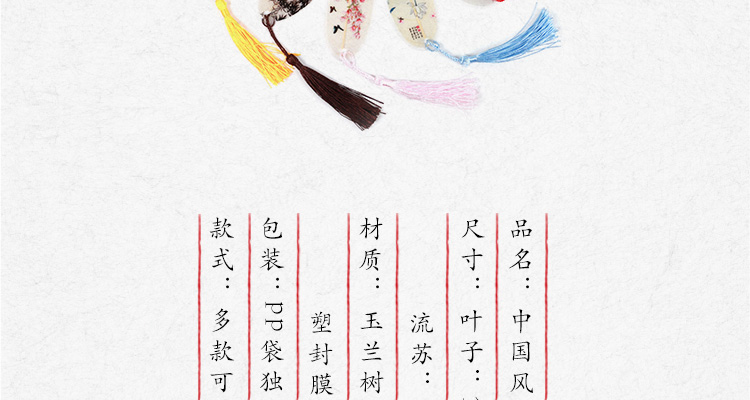 品名：中国风
尺寸：叶子：
流苏：
材质：玉兰树
塑封膜
包装：PP袋独
款式：多款可